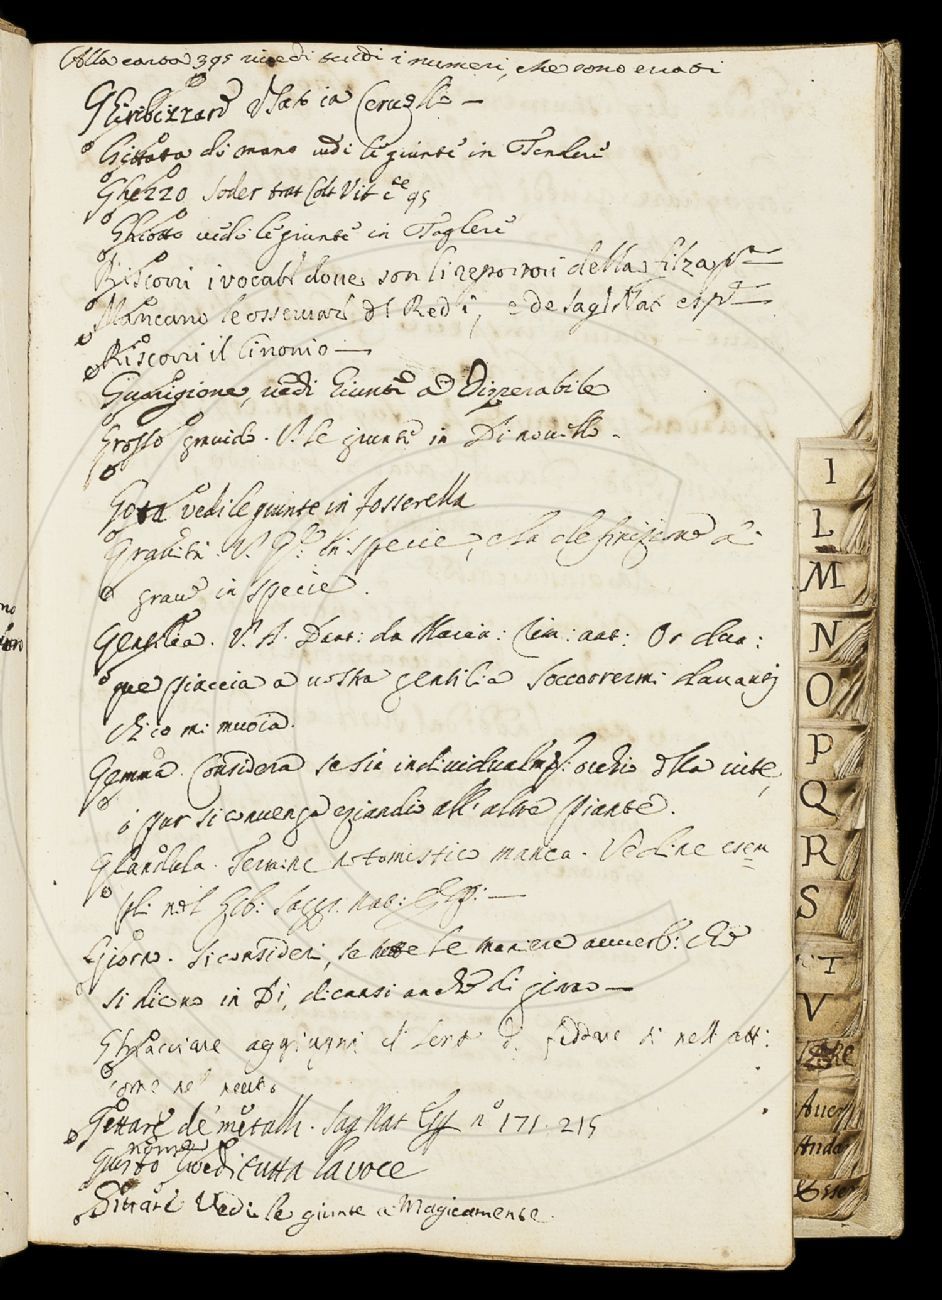 Alla carta 395 vi vedi tutti i numeri, che sono errati
Ghiribizzare V. Sat in Cervello —
Gittata di mano vedi le giunte in Tendere
Ghezzo Soder trat Colt Vit c.e 95
Ghiotto vedi le giunte in Tagliere
Riscorri i vocab. dove son li
della filza pª —
Mancano le osservaz. del Redi, e de Sag. Nat esp.
Riscorri il Cinonio —
Guarigione, vedi Giunte a Disperabile
Grosso gravido. V. le giunte in Di novello.
Gota vedi le giunte in Fosserella
Gravità V. in specie, e la definizione a
grave in specie.
Gentilia. V. A. Dant: da Maian: Rim: ant: Or dun:
que piaccia a vostra gentilia Soccorrermi davanzi
ch'io mi muoia.
Gemma. Considera se sia individualm. p. occhio della vite,
o pur si convenga eziandio all'altre piante.
Glandula. Termine notomistico manca. Vedine esem
pli nel Gib: Sagg. nat: Esp: —
Giorno. Si consideri, se tutte le maniere avverb: che
si dicono in Dì, dicansi anche di giorno —
Ghiacciare aggiugni il
di
sì nell att:
come nel neutro
Gettare de metalli. Sag Nat Esp n° 171. 215
Gusto nome vedi tutta la voce
Gittare Vedi le giunte a Magicamente.
I
L
M
N
O
P
Q
R
S
T
V